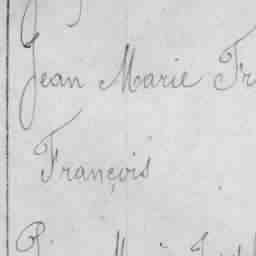 Jean Marie Fr
François